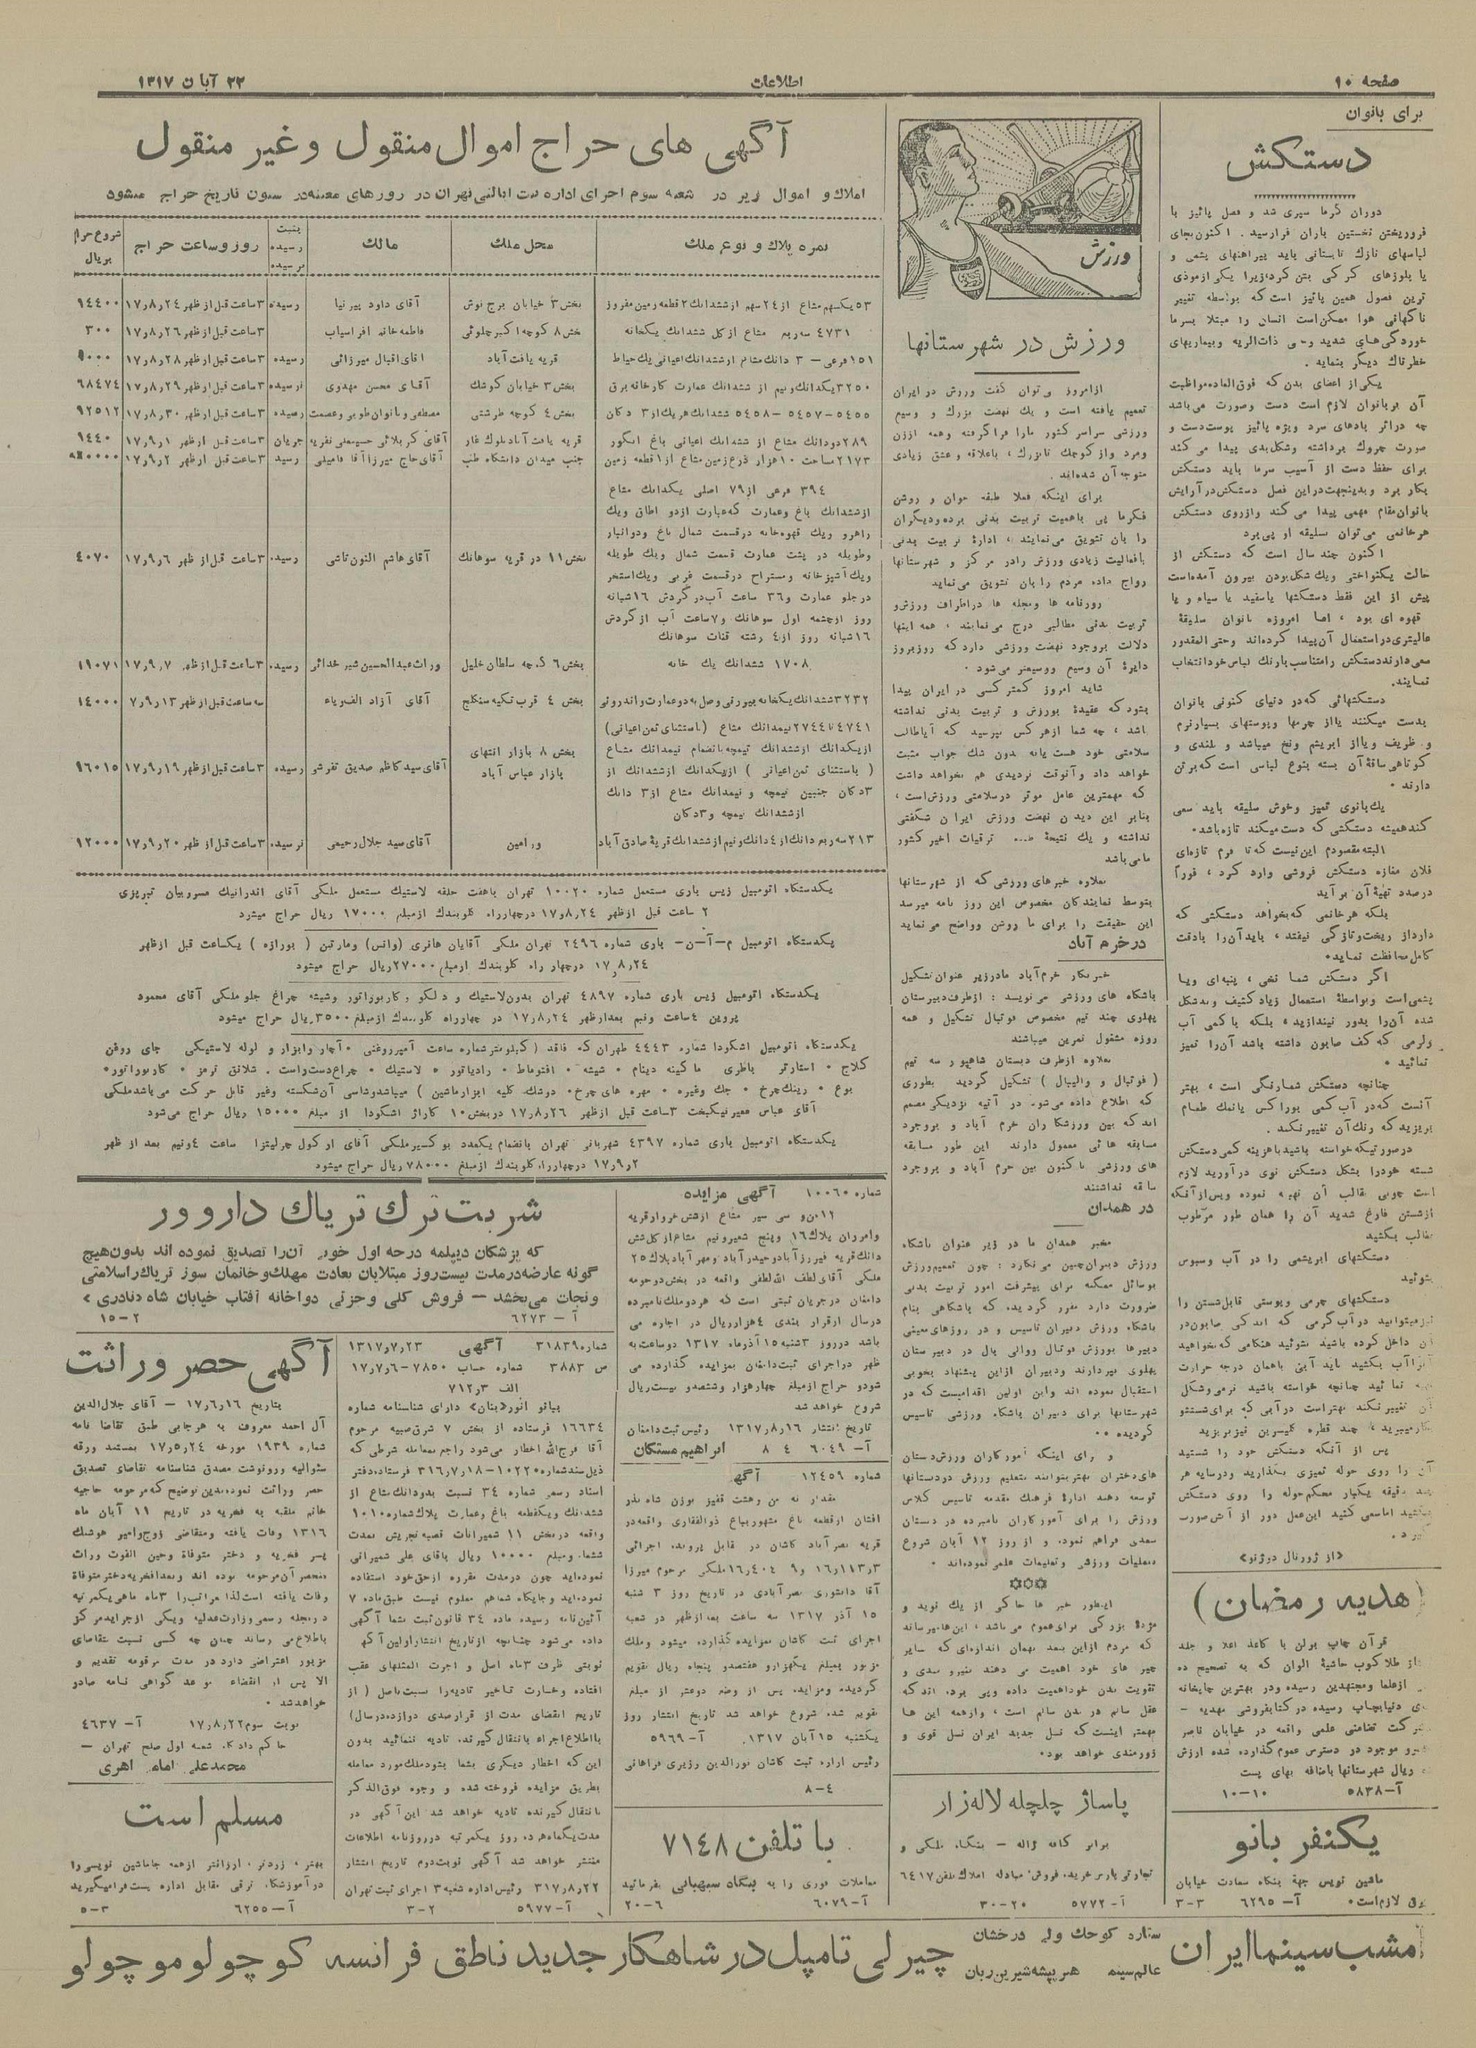 صفحه ۱۰
اطلاعات
۲۲ آبان ۱۳۱۷
برای بانوان
دستکش
دوران گرما سپری شد و فصل پائیز با
فروریختن نخستین باران فرارسید. اکنون بجای
لباسهای نازك تابستانی باید پیراهنهای پشمی و
یا بلوزهای کرکی بتن کرد زیرا یکی از موذی
ترین فصول همین پائیز است که بواسطه تغییر
ناگهانی هوا ممکن است انسان را مبتلا بسرما
خوردگی‌های شدید وحتی ذات‌الریه و بیماریهای
خطرناك دیگر بنماید.
یکی از اعضای بدن که فوق‌العاده مواظبت
آن بر بانوان لازم است دست وصورت می‌باشد
چه دراثر بادهای سرد ویژه پائیز پوست دست و
صورت چروك برداشته وشکل بدی پیدا می کند
برای حفظ دست از آسیب سرما باید دستکش
بکار برد و بدینجهت دراین فصل دستکش در آرایش
بانوان مقام مهمی پیدا می کند وازروی دستکش
هر خانمی می‌توان سلیقه او پی برد
اکنون چند سال است که دستکش از
حالت یکنواختی ویك شکل بودن بیرون آمده است
پیش از این فقط دستکشها یا سفید یا سیاه و یا
قهوه ای بود ، اما امروزه بانوان سلیقهٔ
عالیتری در استعمال آن پیدا کرده‌اند وحتی المقدور
سعی دارند دستکش را متناسب بارنك لباس خود انتخاب
نمایند.
دستکشهائی که در دنیای کنونی بانوان
بدست میکنند یا از چرمها وپوستهای بسیار نرم
و ظریف ویا از ابریشم ونخ میباشد و بلندی و
کوتاهی ساقهٔ آن بسته بنوع لباسی است که بر تن
دارند .
یك بانوی تمیز وخوش سلیقه باید سعی
کند همیشه دستکشی که دست میکند تازه باشد.
البته مقصودم این نیست که تا فرم تازه‌ای
فلان مغازه دستکش فروشی وارد کرد ، فوراً
درصدد تهیهٔ آن برآید
بلکه هر خانمی که بخواهد دستکشی که
دارد از ریخت وتازگی نیفتد ، باید آن را بادقت
کامل محافظت نماید.
اگر دستکش شما نخی ، پنبه‌ای ویا
پشمی است وبواسطهٔ استعمال زیاد کثیف وبدشکل
شده آن را بدور نیندازید، بلکه با کمی آب
ولرمی که کف صابون داشته باشد آن را تمیز
نمائید .
چنانچه دستکش شما رنگی است ، بهتر
آنست که در آب کمی بوراکس یا نمك طعام
بریزید که رنك آن تغییر نکند.
درصورتیکه خواسته باشید با هزینه کمی دستکش
شسته خود را بشکل دستکش نوی در آورید لازم
است چوبی قالب آن تهیه نموده وپس از آنکه
از شستن فارغ شدید آن را همان طور مرطوب
بقالب بکشید
دستکشهای ابریشمی را در آب وسبوس
بشوئید
دستکشهای چرمی وپوستی قابل شستن را
نیز میتوانید در آب گرمی که اندکی صابون در
آن داخل کرده باشید بشوئید هنگامی که بخواهید
پس از آنکه دستکش خود را شستید
آن را روی حوله تمیزی بگذارید ودرسایه هر
«از ژورنال دوژنو»
(هدیه رمضان)
قرآن چاپ برلن با کاغذ اعلا و جلد
طلاکوب حاشیهٔ الوان که به تصحیح ده
از علما ومجتهدین رسیده ودر بهترین چاپخانه
دنیا بچاپ رسیده در کتابفروشی مهدیه -
شرکت تضامنی علمی واقعه در خیابان ناصر
خسرو موجود در دسترس عموم گذارده شده ارزش
ریال شهرستانها باضافه بهای پست
آ-۵۸۳۸ ۱۰-۱۰
یکنفر بانو
ماشین نویس جهة بنگاه سعادت خیابان
برق لازم است. آ- ۶۲۹۵ ۳-۳
ورزش
ورزش در شهرستانها
از امروز می‌توان گفت ورزش در ایران
تعمیم یافته است و یك نهضت بزرك و وسیع
ورزشی سراسر کشور ما را فرا گرفته وهمه اززن
ومرد واز کوچك تا بزرك ، باعلاقه و عشق زیادی
متوجه آن شده‌اند.
برای اینکه فعلا طبقه جوان و روشن
فکر ما پی باهمیت تربیت بدنی برده ودیگران
را بآن تشویق می‌نمایند ، ادارهٔ تربیت بدنی
با فعالیت زیادی ورزش را در مرکز و شهرستانها
رواج داده مردم را بآن تشویق می‌نماید
روزنامه ها ومجله ها در اطراف ورزش و
تربیت بدنی مطالبی درج می‌نمایند ، همه اینها
دلالت بر وجود نهضت ورزشی دارد که روز بروز
دایرهٔ آن وسیع ووسیعتر می‌شود .
شاید امروز کمتر کسی در ایران پیدا
بشود که عقیدهٔ بورزش و تربیت بدنی نداشته
باشد ، چه شما از هر کس بپرسید که آیا طالب
سلامتی خود هست یا نه بدون شك جواب مثبت
خواهد داد وآنوقت تردیدی هم نخواهد داشت
که مهمترین عامل موثر در سلامتی ورزش است ،
بنابر این دیدن نهضت ورزش ایران شگفتی
نداشته و یك نتیجهٔ ترقیات اخیر کشور
ما می باشد
بعلاوه خبرهای ورزشی که از شهرستانها
بتوسط نمایندگان مخصوص این روز نامه میرسد
این حقیقت را برای ما روشن وواضح می نماید
در خرم آباد
خبر نگار خرم‌آباد ما در زیر عنوان تشکیل
باشگاه های ورزشی می نویسد : از طرف دبیرستان
پهلوی چند تیم مخصوص فوتبال تشکیل و همه
روزه مشغول تمرین میباشند
بعلاوه از طرف دبستان شاهپور سه تیم
( فوتبال و والیبال ) تشکیل گردید بطوری
که اطلاع داده می‌شود در آتیه نزدیکی مصمم
اند که بین ورزشکاران خرم آباد و بروجرد
مسابقه هائی معمول دارند این طور مسابقه
های ورزشی تاکنون بین خرم آباد و بروجرد
سابقه نداشتند
در همدان
مخبر همدان ما در زیر عنوان باشگاه
ورزش دبیران چنین می‌نگارد : چون تعمیم ورزش
بوسائل ممکنه برای پیشرفت امور تربیت بدنی
ضرورت دارد مقرر گردید، که باشگاهی بنام
باشگاه ورزش دبیران تاسیس و در روزهای معینی
دبیرها بورزش فوتبال ووالی بال در دبیرستان
پهلوی بپردازند ودبیران ازاین پیشنهاد بخوبی
استقبال نموده اند واین اولین اقدامیست که در
شهرستانها برای دبیران باشگاه ورزشی تاسیس
گردیده .
و رای اینکه آموزگاران ورزش دبستان
های دختران بهتر بتوانند بتعلیم ورزش در دبستانها
توسعه دهند ادارهٔ فرهنك مقدمه تاسیس کلاس
ورزش را برای آموزگاران نامبرده در دبستان
سعدی فراهم نمود، و از روز ۱۲ آبان شروع
بعملیات ورزشی وتعلیمات علمی نموده‌اند.
اینطور خبر ها حاکی از یك نوید و
مژدهٔ بزرگی برای عموم می باشد ، این ها میرساند
که مردم از این ببعد بهمان اندازه‌ای که سایر
چیز های خود اهمیت می دهند بنیرو مندی و
تقویت بدن خود اهمیت داده وپی برده اند که
عقل سالم در بدن سالم است ، وازهمه این ها
مهمتر اینست که نسل جدید ایران نسل قوی و
زورمندی خواهد بود.
پاساژ چلچله لاله‌زار
برابر کافه ژاله - بنگاه ملکی و
تجارتی پارس خرید، فروش، مبادله املاك تلفن ۶۴۱۷
آ- ۵۷۷۲ ۲۰-۳۰
آگهی های حراج اموال منقول وغیر منقول
املاك و اموال زیر در شعبه سوم اجرای اداره ثبت ایالتی تهران در روزهای معینه در ستون تاریخ حراج میشود
نمره پلاك و نوع ملك | محل ملك | مالك | بثبت رسیده نرسیده | روز وساعت حراج | شروع حراج بریال
۵۳ یکسهم مشاع از ۲۴ سهم از ششدانك ۲ قطعه زمین مفروز | بخش ۳ خیابان برج نوش | آقای داود پیرنیا | رسیده | ۳ ساعت قبل از ظهر ۱۷٫۸٫۲۴ | ۱۴۴۰۰
۴۷۳۱ سه ربع مشاع از کل ششدانك یکخانه | بخش ۸ کوچه اکبر چلوئی | فاطمه خانم افراسیاب | ۳ ساعت قبل از ظهر ۱۷٫۸٫۲۶ | ۳۰۰
۱۵۱ فرعی - ۳ دانك مشاع از ششدانك اعیانی یك حیاط | قریه یافت آباد | آقای اقبال میرزائی | رسیده | ۳ ساعت قبل از ظهر ۱۷٫۸٫۲۸ | ۹۰۰۰
۳۲۵۰ یکدانك ونیم از ششدانك عمارت کارخانه برق | بخش ۳ خیابان گوشك | آقای محسن مهدوی | نرسیده | ۳ ساعت قبل از ظهر ۱۷٫۸٫۲۹ | ۶۸۴۷۴
۵۴۵۵-۵۴۵۷-۵۴۵۸ ششدانك هریك از ۳ دکان | بخش ۴ کوچه طرشتی | مصطفی وبانوان طوبی وعصمت | رسیده | ۳ ساعت قبل از ظهر ۱۷٫۸٫۳۰ | ۹۲۵۱۲
۲۸۹ دودانك مشاع از ششدانك اعیانی باغ انگور | قریه یافت آباد بلوك غار | آقای کربلائی حسینعلی نقریه | جریان | ۳ ساعت قبل از ظهر ۱۷٫۹٫۱ | ۱۴۴۰
۲۱۷۳ مساحت ۱۰هزار ذرع زمین مشاع از ۱ قطعه زمین | جنب میدان دانشگاه طب | آقای حاج میرزا آقا فامیلی | رسید | ۳ ساعت قبل از ظهر ۱۷٫۹٫۲
۳۹۴ فرعی از ۷۹ اصلی یکدانك مشاع
از ششدانك باغ وعمارت که عبارت از دو اطاق ویك
راهرو ویك قهوه‌خانه در قسمت شمال باغ ودو انبار
وطویله در پشت عمارت قسمت شمال ویك طویله
ویك آشپزخانه ومستراح درقسمت غربی ویك استخر
در جلو عمارت و ۳۶ ساعت آب در گردش ۱۶ شبانه
روز از چشمه اول سوهانك و ۷ ساعت آب از گردش
۱۶ شبانه روز از ۴ رشته قنات سوهانك | بخش ۱۱ در قریه سوهانك | آقای هاشم النون تاشی | رسید | ۳ ساعت قبل از ظهر ۱۷٫۹٫۶ | ۴۰۷۰
۱۷۰۸ ششدانك یك خانه | بخش ۶ کوچه سلطان خلیل | وراث عبدالحسین شیر خدائی | رسید | ۳ ساعت قبل از ظهر ۱۷٫۹٫۷ | ۱۹۰۷۱
۳۲۳۲ ششدانك یکخانه بیرونی وصل به دو عمارت واندرونی | بخش ۴ قرب تکیه سنگلج | آقای آزاد الف ریاء | سه ساعت قبل از ظهر ۱۷٫۹٫۱۳ | ۱۴۰۰۰
۴۷۴۱ تا ۲۷۴۴ نیمدانك مشاع (باستثنای ثمن اعیانی)
از یکدانك از ششدانك تیمچه بانضمام نیمدانك مشاع
( باستثنای ثمن اعیانی ) از یکدانك از ششدانك از
۳ دکان جنبین تیمچه و نیمدانك مشاع از ۳ دانك
از ششدانك تیمچه و ۳ دکان | بخش ۸ بازار انتهای بازار عباس آباد | آقای سید کاظم صدیق تفرشی | رسیده | ۳ ساعت قبل از ظهر ۱۷٫۹٫۱۹ | ۹۶۰۱۵
۲۱۳ سه ربع دانك از ۴ دانك ونیم از ششدانك قریهٔ صادق آباد | ورامین | آقای سید جلال رحیمی | نرسید | ۳ ساعت قبل از ظهر ۱۷٫۹٫۲۰ | ۱۲۰۰۰
یکدستگاه اتومبیل زیس باری مستعمل شماره ۱۰۰۲۰ تهران باهفت حلقه لاستیك مستعمل ملکی آقای اندرانیك مسروبیان تبریزی
۲ ساعت قبل از ظهر ۱۷٫۸٫۲۴ در چهارراه کلوبندك از مبلغ ۱۷۰۰۰ ریال حراج میشود
یکدستگاه اتومبیل م-آ-ن- باری شماره ۲۴۹۶ تهران ملکی آقایان هانری (وانس) ومارتین ( بورازه ) یکساعت قبل از ظهر
۱۷٫۸٫۲۴ در چهار راه کلوبندك از مبلغ ۲۷۰۰۰ ریال حراج میشود
یکدستگاه اتومبیل زیس باری شماره ۴۸۹۷ تهران بدون لاستیك و دلکو و کاربوراتور وشیشه چراغ جلو ملکی آقای محمود
پروین ۴ ساعت ونیم بعد از ظهر ۱۷٫۸٫۲۴ در چهارراه کلوبندك از مبلغ ۳۵۰۰ ریال حراج میشود
یکدستگاه اتومبیل اشکودا شماره ۴۴۴۳ طهران که فاقد ( کیلومتر شماره ساعت آمپر روغنی . آچار وابزار و لوله لاستیکی جای روغن
کلاج . استارتر باطری ماکینه دینام . شیشه . افتوماط . رادیاتور . لاستیك . چراغ دست راست . شلانق ترمز . کاربوراتور.
بوغ . رینك چرخ . جك وغیره . مهره های چرخ. دوشك. کلیه ابزار ماشین ) میباشد وشاسی آن شکسته وغیر قابل حرکت می باشد ملکی
آقای عباس معیر نیکبخت ۳ ساعت قبل از ظهر ۱۷٫۸٫۲۶ در بخش ۱۰ گاراژ اشکودا از مبلغ ۱۵۰۰۰ ریال حراج می‌شود
یکدستگاه اتومبیل باری شماره ۴۳۹۷ شهربانی تهران بانضمام یکعدد بوکسیر ملکی آقای او گول چرلیتزا ساعت ۴ ونیم بعد از ظهر
۱۷٫۹٫۲ در چهارراه کلوبندك از مبلغ ۷۸۰۰۰ ریال حراج میشود
شماره ۱۰۰۶۰ آگهی مزایده
۱۲من و سی سیر مشاع از شش خروار قریه
وامروان پلاك ۱۶ وپنج شعیر ونیم مشاع از کل شش
دانك قریه فیروزآباد وحیدرآباد ومهرآباد پلاك ۲۵
ملکی آقای لطف الله لطفی واقعه در بخش دو حومه
دامغان در جریان ثبتی است که هر دو ملك نامبرده
در سال از قرار بندی ۴ هزار ریال در اجاره می
باشد در روز ۳ شنبه ۱۵ آذر ماه ۱۳۱۷ دو ساعت به
ظهر دراجرای ثبت دامغان بمزایده گذارده می
شود و حراج از مبلغ چهارهزار وششصد و بیست ریال
شروع خواهد شد
تاریخ انتشار ۱۳۱۷٫۸٫۱۶ رئیس ثبت دامغان
آ- ۶۰۴۹ ۴ ۸ ابراهیم مستکان
شماره ۱۲۴۵۹ آگهی
مقدار نه من وهشت قفیز بوزن شاه بذر
افشان از قطعه باغ مشهور بباغ ذوالفقاری واقعه در
قریه نصر آباد کاشان در قابل پرونده اجرائی
آقا دانشوری نصر آبادی در تاریخ روز ۳ شنبه
۱۵ آذر ۱۳۱۷ سه ساعت بعد از ظهر در شعبه
اجرای ثبت کاشان بمزایده گذارده میشود وملك
مزبور بمبلغ یکهزارو هفتصدو پنجاه ریال تقویم
گردیده ومزایده پس از وضع دوعشر از مبلغ
تقویم شده شروع خواهد شد تاریخ انتشار روز
یکشنبه ۱۵ آبان ۱۳۱۷ آ- ۵۹۶۹
رئیس اداره ثبت کاشان نورالدین وزیری فراهانی
۴-۸
با تلفن ۷۱۴۸
معاملات فوری را به بنگاه سبهبانی بفرمائید
آ- ۶۰۷۹ ۶-۲۰
شربت ترك تریاك دار وور
که پزشکان دیپلمه درجه اول خود، آن را تصدیق نموده اند بدون هیچ
گونه عارضه در مدت بیست روز مبتلایان بعادت مهلك و خانمان سوز تریاك را سلامتی
ونجات می‌بخشد - فروش کلی وجزئی دواخانه آفتاب خیابان شاه «نادری»
آ- ۶۲۷۳ ۲-۱۵
شماره ۳۱۸۳۹ آگهی ۱۳۱۷٫۷٫۲۳
ص ۳۸۸۳ شماره حساب ۷۸۵۰-۱۷٫۷٫۶
الف ۷۱۲٫۳
ببانو انور «بنان» دارای شناسنامه شماره
۱۶۶۳۴ فرستاده از بخش ۷ شرق صبیه مرحوم
آقا فرج‌الله اخطار می‌شود راجع بمعامله شرطی که
ذیل سند شماره ۱۰۲۲۰-۳۱۶٫۷٫۱۸ فرستاده دفتر
اسناد رسمی شماره ۳۴ نسبت بدودانك مشاع از
ششدانك ویکقطعه باغ وعمارت پلاك شماره ۱۰۱۰
واقعه در بخش ۱۱ شمیرانات قصبه تجریش بمدت
ششماه ومبلغ ۱۰۰۰۰ ریال باقای علی شمیرانی
نموده‌اید چون درمدت مقرره از حق خود استفاده
نموده‌اید وجایگاه شما هم معلوم نیست طبق ماده ۷
آئین‌نامه رسیده ماده ۳۴ قانون ثبت بشما آگهی
داده می‌شود چنانچه از تاریخ انتشار اولین آگهی
نوبتی ظرف ۳ ماه اصل و اجرت المثلهای عقب
افتاده وخسارت تاخیر تادیه را نسبت باصل ( از
تاریخ انقضای مدت از قرار صدی دوازده درسال)
بااطلاع اجراء بانتقال گیرنده تادیه ننمائید بدون
این که اخطار دیگری بشما بشود ملك مورد معامله
بطریق مزایده فروخته شده و وجوه فوق‌الذکر
بانتقال گیرنده تادیه خواهد شد این آگهی در
مدت یکماه هرده روز یکمرتبه در روزنامه اطلاعات
منتشر خواهد شد آگهی نوبت دوم تاریخ انتشار
۳۱۷٫۸٫۲۲ رئیس اداره شعبه ۳ اجرای ثبت تهران
آ- ۵۹۷۷ ۲-۳
آگهی حصر وراثت
بتاریخ ۱۷٫۶٫۱۶ - آقای جلال‌الدین
آل احمد معروف به هرجابی طبق تقاضا نامه
شماره ۱۹۳۹ مورخه ۱۷٫۵٫۲۴ بمستند ورقه
سئوالیه ورونوشت مصدق شناسنامه تقاضای تصدیق
حصر وراثت نموده بدین توضیح که مرحومه حاجیه
خانم ملقبه به فخریه در تاریخ ۱۱ آبان ماه
۱۳۱۶ وفات یافته ومتقاضی زوج وامیر هوشنك
پسر فخریه و دختر متوفاة وحین الفوت وراث
منحصر آن مرحومه بوده اند وبعدا فخریه دختر متوفاة
وفات یافته است لذا مراتب را ۳ ماه ماهی یکمرتبه
در مجله رسمی وزارت عدلیه ویکی از جراید مرکز
باطلاع می رساند چنان چه کسی نسبت بتقاضای
مزبور اعتراضی دارد در مدت مرقومه تقدیم و
الا پس از انقضاء موعد گواهی نامه صادر
خواهد شد .
نوبت سوم ۱۷٫۸٫۲۲ آ- ۴۶۳۷
حاکم دادگاه شعبه اول صلح تهران -
محمد علی امامی اهری
مسلم است
بهتر ، زودتر ، ارزانتر از همه جا ماشین نویسی را
در آموزشگاه ترقی مقابل اداره پست فرامیگیرید
آ- ۶۲۵۵ ۳-۵
امشب سینما ایران
ستاره کوچك ولی درخشان
عالم سینما هنرپیشه شیرین زبان
چیرلی تامپل در شاهکار جدید ناطق فرانسه کوچولو موچولو